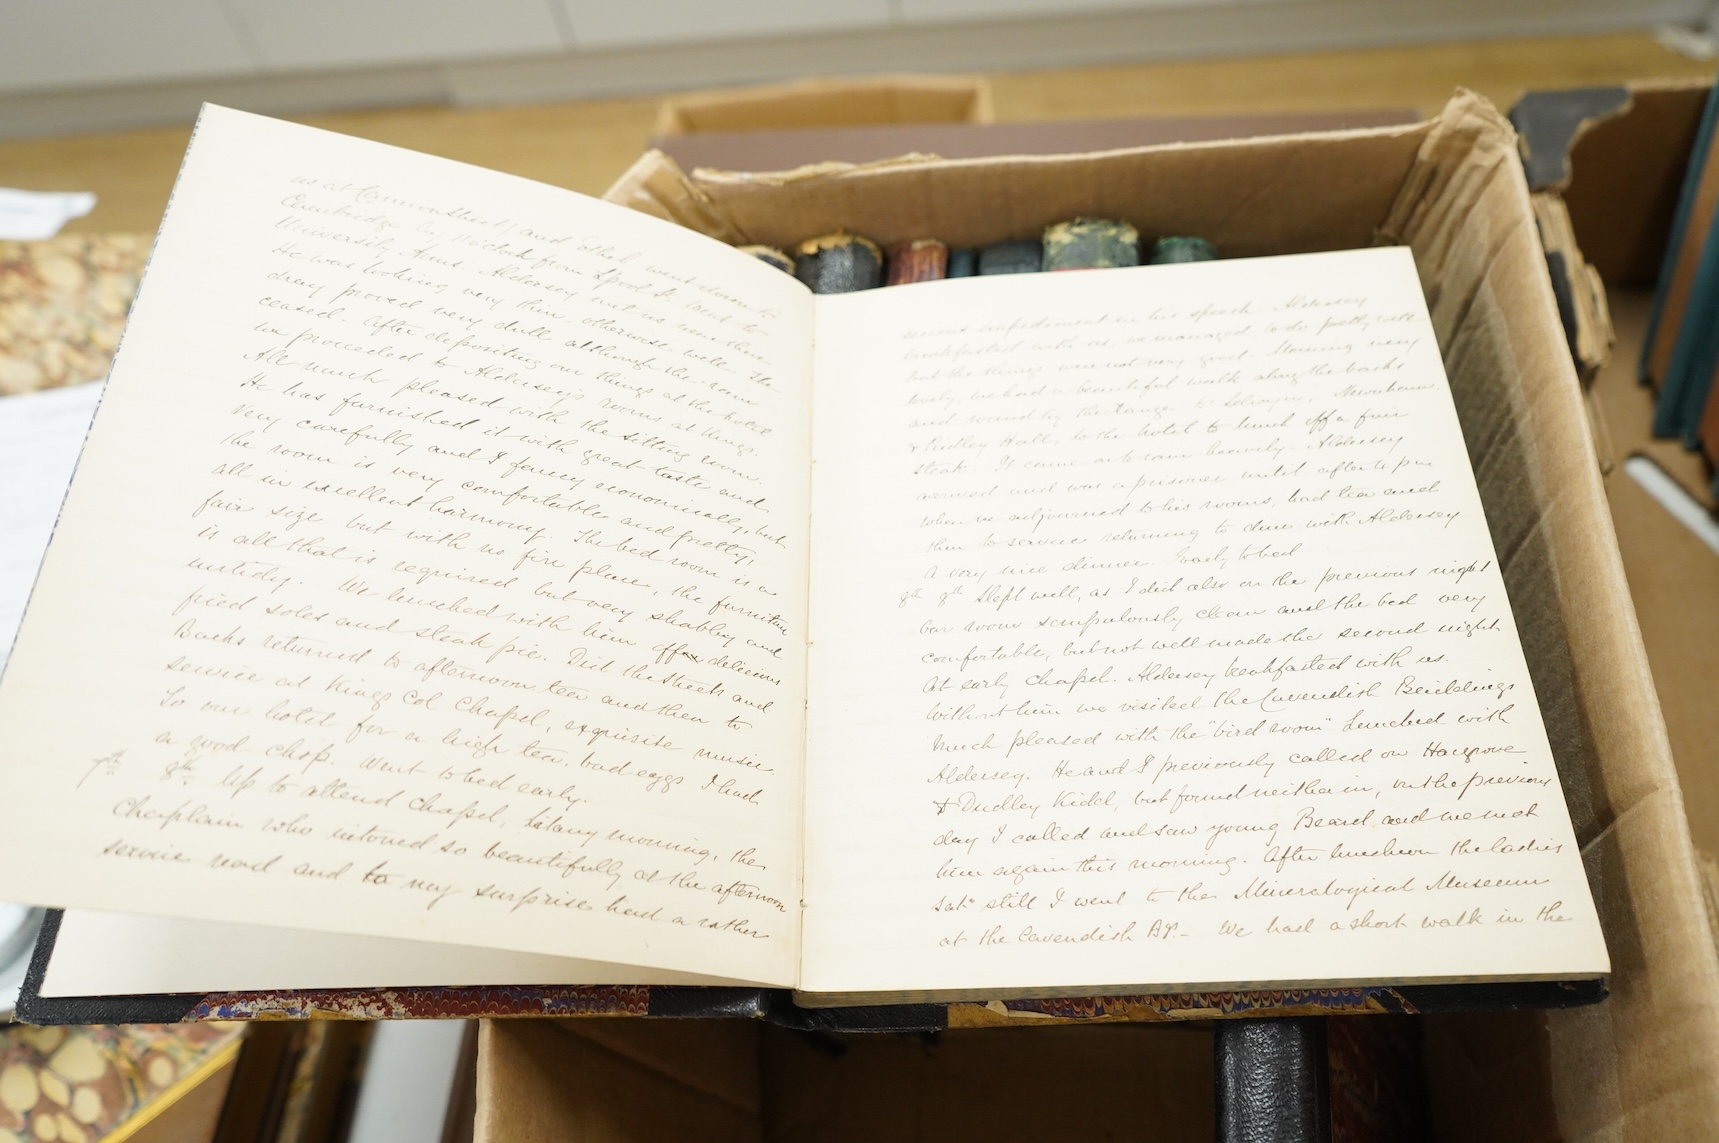 us at Cannon Street / and Ethel went down to
Cambridge by 11 o'clock from Lpool St. Went to
University Arms. Aldersey met us near there
He was looking very thin, otherwise well. The
day proved very dull although the rain
ceased. After depositing our things at the hotel
we proceeded to Aldersey's rooms at Kings.
All much pleased with the sitting room.
He has furnished it with great taste and
very carefully and I fancy economically, but
the room is very comfortable and pretty,
all in excellent harmony. The bed room is a
fair size but with no fire place, the furniture
is all that is required but very shabby and
untidy. We lunched with him off delicious
fried soles and steak pie. Did the streets and
Backs returned to afternoon tea and then to
service at Kings Col Chapel, exquisite music.
To our hotel for a high tea. bad eggs I had
a good chop. Went to bed early.
7th 8th. Up to attend chapel, litany morning, the
Chaplain who intoned so beautifully at the afternoon
service read and to my surprise had a rather
serious impediment in his speech. Aldersey
breakfasted with us, we managed to do pretty well
but the things were not very good. Morning very
lovely, we had a beautiful walk along the backs
and round by the Range to Selwyn, Newnham,
& Ridley Hall, to the hotel to lunch off a fine
steak. It came on to rain heavily. Aldersey
arrived and was a prisoner until after 4 pm
when we adjourned to his rooms, had tea and
then to service returning to dine with Aldersey
A very nice dinner. Early to bed
8th 9th Slept well, as I did also on the previous night
Our room scrupulously clean and the bed very
comfortable, but not well made the second night
At early chapel. Aldersey breakfasted with us.
Without him we visited the Cavendish Buildings
Much pleased with the "bird room" Lunched with
Aldersey. He and I previously called on Hargrove
& Dudley Kidd, but found neither in, on the previous
day I called and saw young Beard and we met
him again this morning. After luncheon the ladies
sat still I went to the Mineralogical Museum
at the Cavendish Bgs. We had a short walk in the